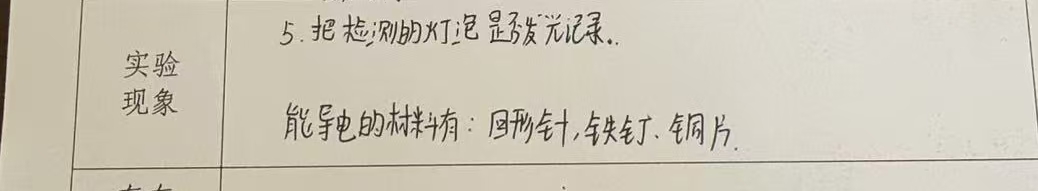 5.把检测的灯泡是否发光记录.
实验
现象
能导电的材料有:回形针,铁钉、铜片.